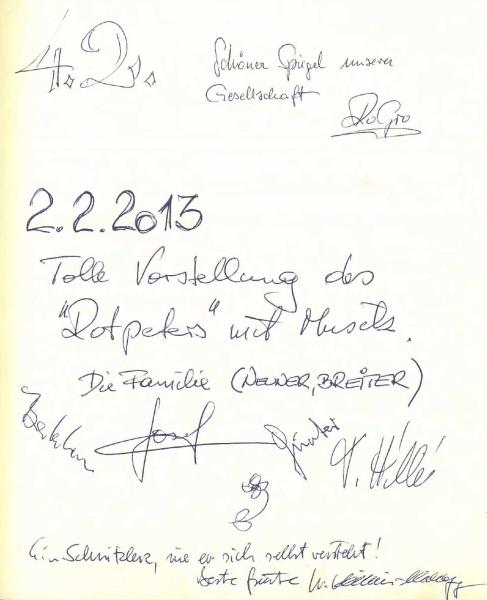 4.2.
Schöner Spiegel unserer
Gesellschaft
RoGro
2.2.2013
Tolle Vorstellung des
"Rotpeters" mit Musik.
Die Familie (NEUNER, BREITER)
Josef
Günther
Ein Schnitzler, wie er sich selbst versteht!